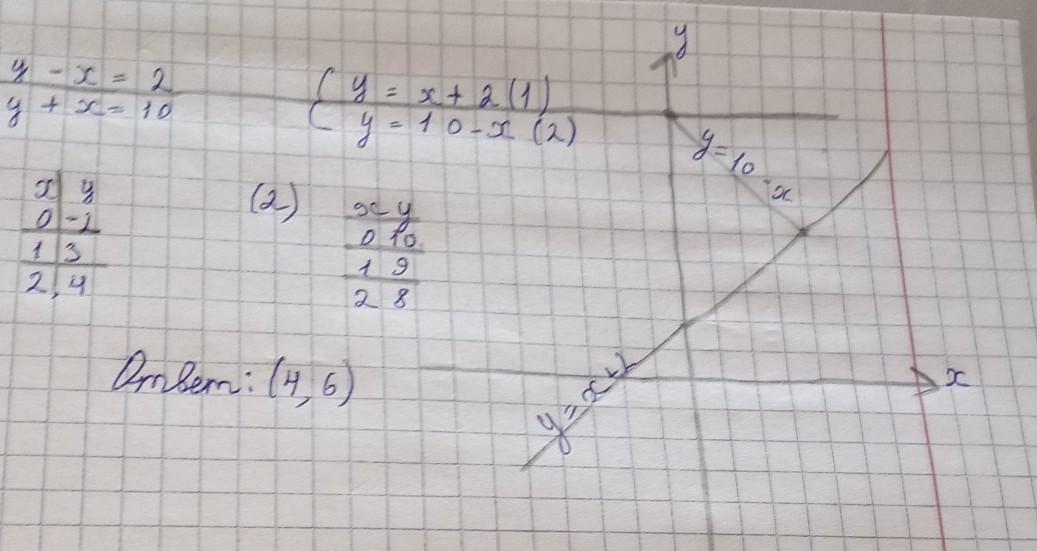 y - x = 2
y + x = 10
{ y = x + 2 (1)
y = 10 - x (2)
x y
0 -2
1 3
2, 4
(2)
x y
0 10
1 9
2 8
Ответ: (4, 6)
y
y = 10 - x
y = x + 2
x